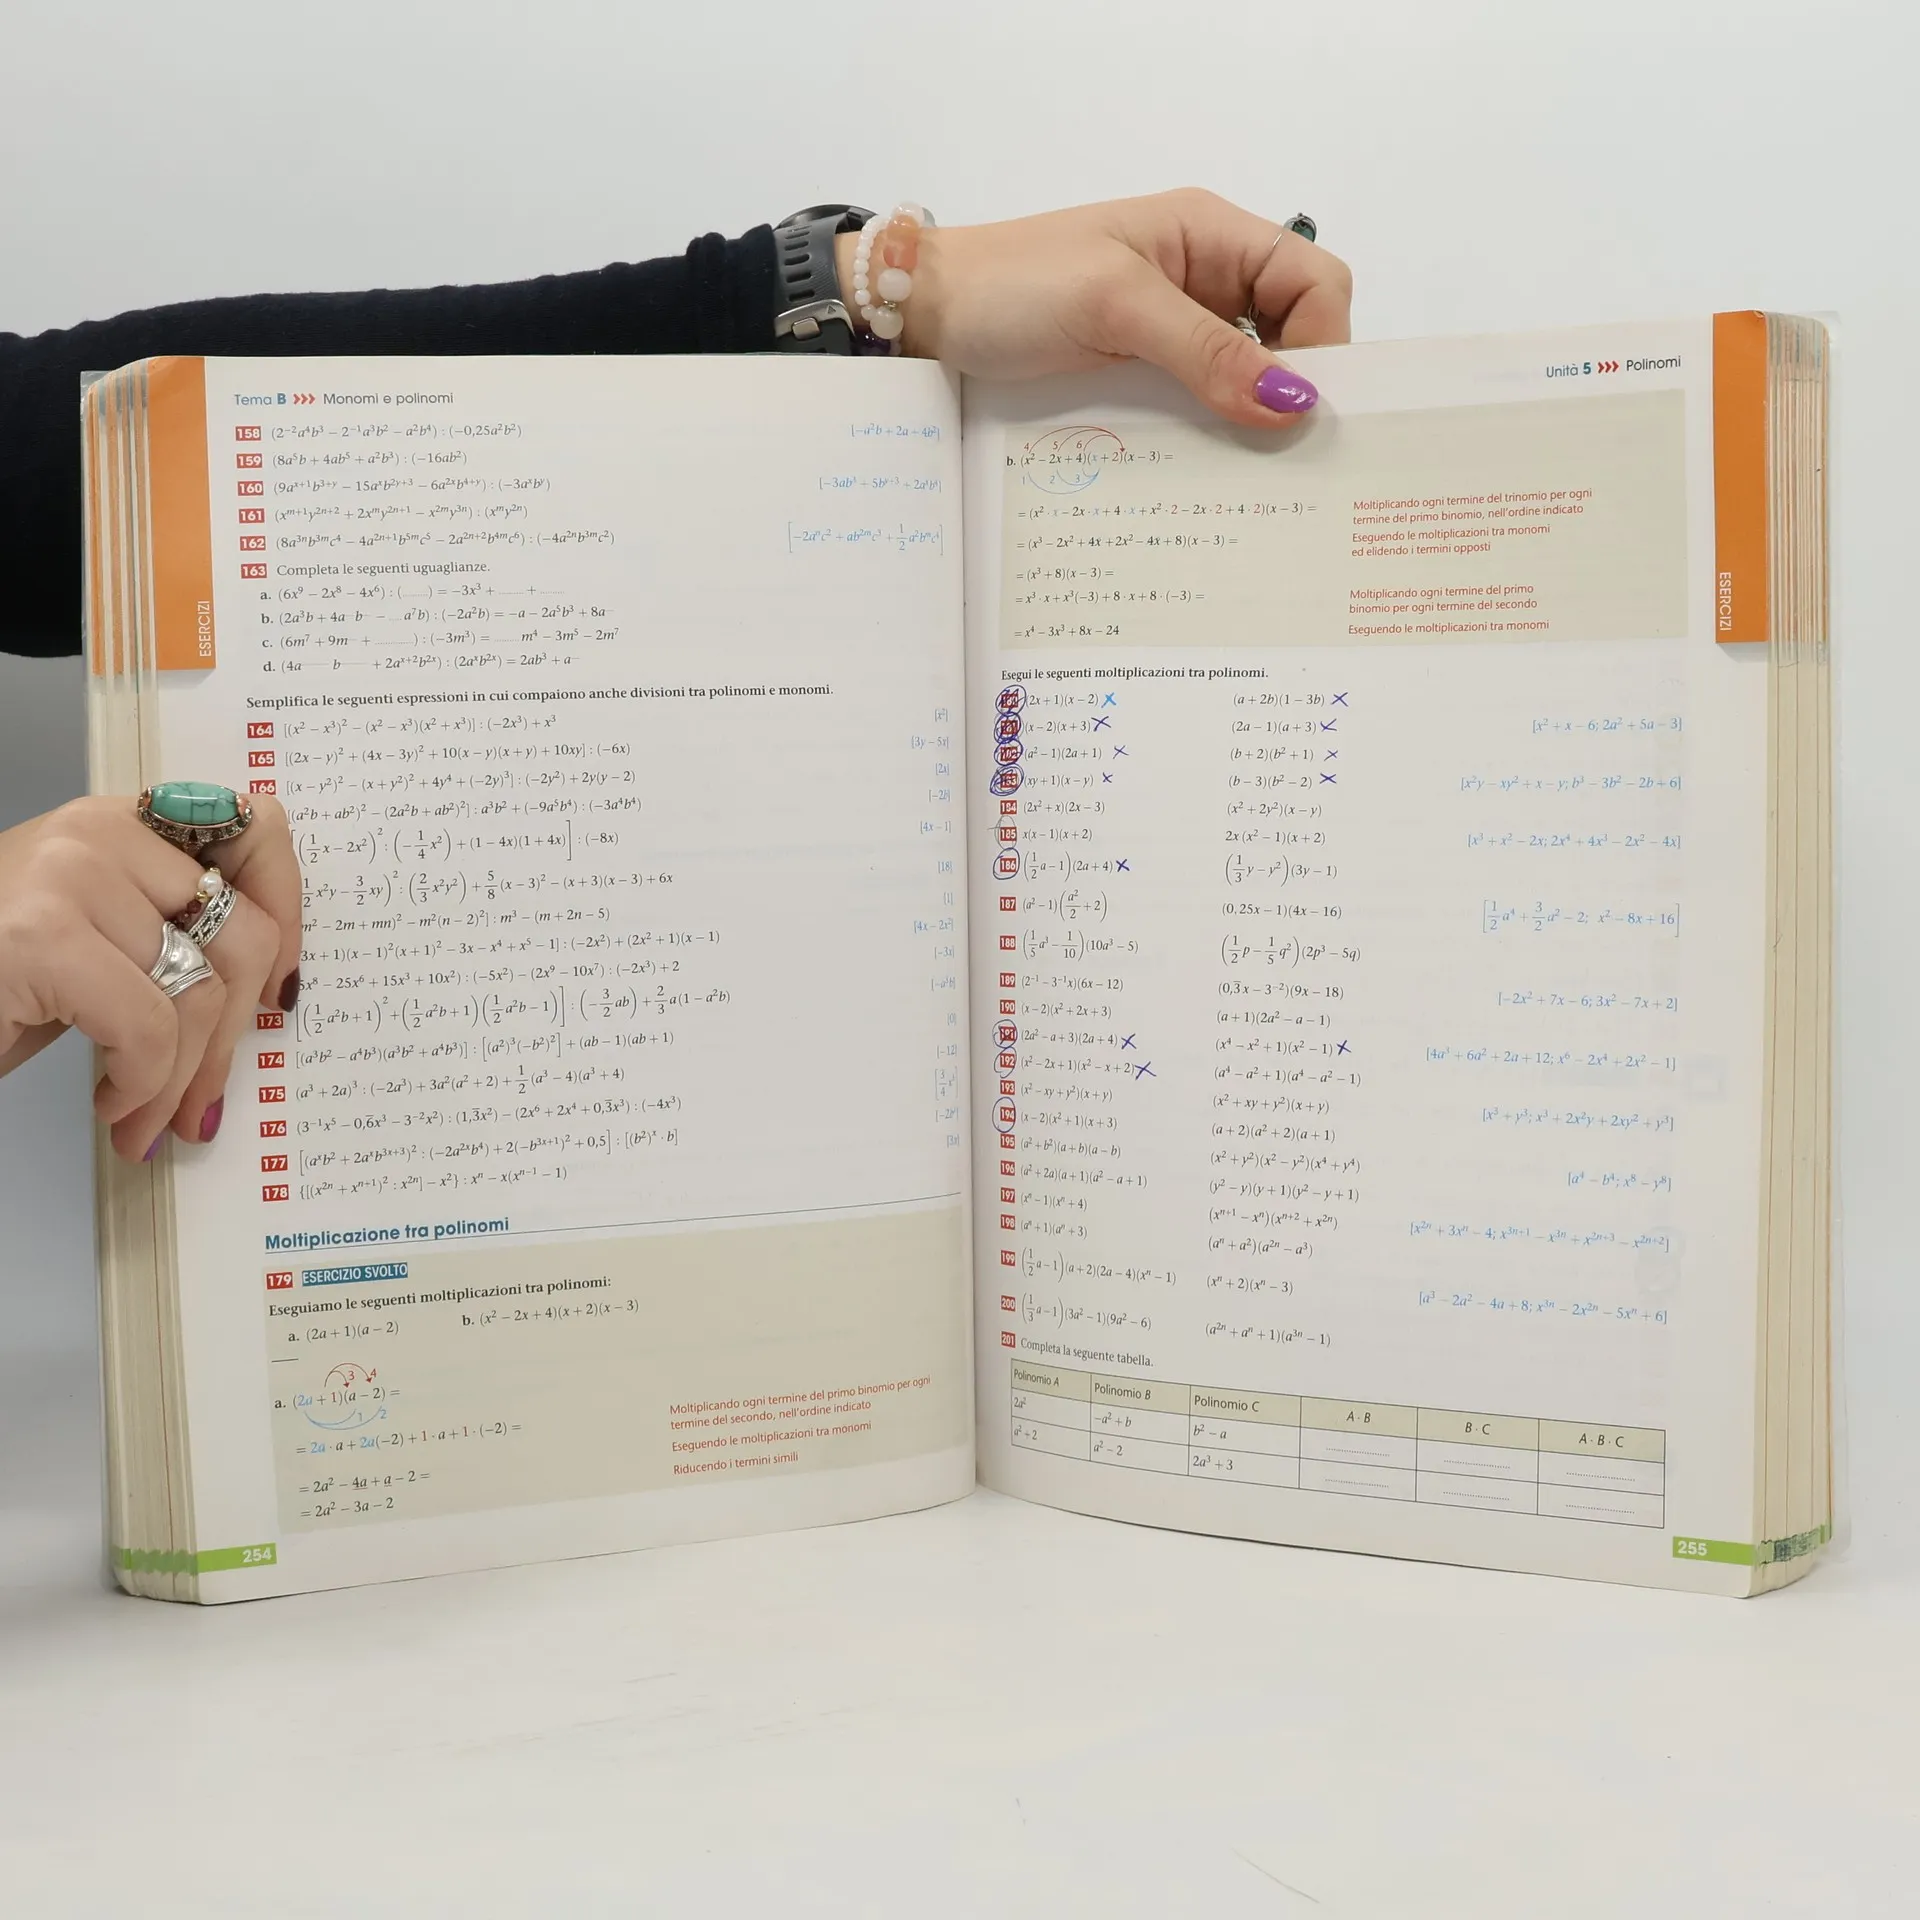 Tema B ››› Monomi e polinomi
158 (2⁻²a⁴b³ − 2⁻¹a³b² − a²b⁴) : (−0,25a²b²) [−a²b + 2a + 4b²]
159 (8a⁵b + 4ab⁵ + a²b³) : (−16ab²)
160 (9aˣ⁺¹b³⁺ʸ − 15aˣb²ʸ⁺³ − 6a²ˣb⁴⁺ʸ) : (−3aˣbʸ) [−3ab³ + 5bʸ⁺³ + 2aˣb⁴]
161 (xᵐ⁺¹y²ⁿ⁺² + 2xᵐy²ⁿ⁺¹ − x²ᵐy³ⁿ) : (xᵐy²ⁿ)
162 (8a³ⁿb³ᵐc⁴ − 4a²ⁿ⁺¹b⁵ᵐc⁵ − 2a²ⁿ⁺²b⁴ᵐc⁶) : (−4a²ⁿb³ᵐc²) [−2aⁿc² + ab²ᵐc³ + 1/2 a²bᵐc⁴]
163 Completa le seguenti uguaglianze.
a. (6x⁹ − 2x⁸ − 4x⁶) : (........) = −3x³ + ........ + ........
b. (2a³b + 4a b − .... a⁷b) : (−2a²b) = −a − 2a⁵b³ + 8a
c. (6m⁷ + 9m + ..........) : (−3m³) = ........ m⁴ − 3m⁵ − 2m⁷
d. (4a b + 2aˣ⁺²b²ˣ) : (2aˣb²ˣ) = 2ab³ + a
Semplifica le seguenti espressioni in cui compaiono anche divisioni tra polinomi e monomi.
164 [(x² − x³)² − (x² − x³)(x² + x³)] : (−2x³) + x³ [x²]
165 [(2x − y)² + (4x − 3y)² + 10(x − y)(x + y) + 10xy] : (−6x) [3y − 5x]
166 [(x − y²)² − (x + y²)² + 4y⁴ + (−2y)³] : (−2y²) + 2y(y − 2) [2x]
[(a²b + ab²)² − (2a²b + ab²)²] : a³b² + (−9a⁵b⁴) : (−3a⁴b⁴) [−2b]
[(1/2 x − 2x²)² : (−1/4 x²) + (1 − 4x)(1 + 4x)] : (−8x) [4x − 1]
1/2 x²y − 3/2 xy)² : (2/3 x²y²) + 5/8 (x − 3)² − (x + 3)(x − 3) + 6x [18]
m² − 2m + mn)² − m²(n − 2)²] : m³ − (m + 2n − 5) [1]
3x + 1)(x − 1)²(x + 1)² − 3x − x⁴ + x⁵ − 1] : (−2x²) + (2x² + 1)(x − 1) [4x − 2x²]
5x⁸ − 25x⁶ + 15x³ + 10x²) : (−5x²) − (2x⁹ − 10x⁷) : (−2x³) + 2 [−3x]
173 [(1/2 a²b + 1)² + (1/2 a²b + 1)(1/2 a²b − 1)] : (−3/2 ab) + 2/3 a(1 − a²b) [−a³b]
174 [(a³b² − a⁴b³)(a³b² + a⁴b³)] : [(a²)³(−b²)²] + (ab − 1)(ab + 1) [0]
175 (a³ + 2a)³ : (−2a³) + 3a²(a² + 2) + 1/2 (a³ − 4)(a³ + 4) [−12]
176 (3⁻¹x⁵ − 0,6̅x³ − 3⁻²x²) : (1,3̅x²) − (2x⁶ + 2x⁴ + 0,3̅x³) : (−4x³)
177 [(aˣb² + 2aˣb³ˣ⁺³)² : (−2a²ˣb⁴) + 2(−b³ˣ⁺¹)² + 0,5] : [(b²)ˣ · b]
178 {[(x²ⁿ + xⁿ⁺¹)² : x²ⁿ] − x²} : xⁿ − x(xⁿ⁻¹ − 1)
Moltiplicazione tra polinomi
179 ESERCIZIO SVOLTO
Eseguiamo le seguenti moltiplicazioni tra polinomi:
a. (2a + 1)(a − 2) b. (x² − 2x + 4)(x + 2)(x − 3)
3 4
a. (2a + 1)(a − 2) =
1 2
= 2a · a + 2a(−2) + 1 · a + 1 · (−2) =
Moltiplicando ogni termine del primo binomio per ogni
termine del secondo, nell'ordine indicato
= 2a² − 4a + a − 2 = Eseguendo le moltiplicazioni tra monomi
= 2a² − 3a − 2 Riducendo i termini simili
254
Unità 5 ››› Polinomi
4 5 6
b. (x² − 2x + 4)(x + 2)(x − 3) =
1 2 3
= (x² · x − 2x · x + 4 · x + x² · 2 − 2x · 2 + 4 · 2)(x − 3) =
Moltiplicando ogni termine del trinomio per ogni
termine del primo binomio, nell'ordine indicato
= (x³ − 2x² + 4x + 2x² − 4x + 8)(x − 3) =
Eseguendo le moltiplicazioni tra monomi
ed elidendo i termini opposti
= (x³ + 8)(x − 3) =
= x³ · x + x³(−3) + 8 · x + 8 · (−3) =
Moltiplicando ogni termine del primo
binomio per ogni termine del secondo
= x⁴ − 3x³ + 8x − 24 Eseguendo le moltiplicazioni tra monomi
Esegui le seguenti moltiplicazioni tra polinomi.
(2x + 1)(x − 2) (a + 2b)(1 − 3b)
(x − 2)(x + 3) (2a − 1)(a + 3) [x² + x − 6; 2a² + 5a − 3]
(a² − 1)(2a + 1) (b + 2)(b² + 1)
(xy + 1)(x − y) (b − 3)(b² − 2) [x²y − xy² + x − y; b³ − 3b² − 2b + 6]
184 (2x² + x)(2x − 3) (x² + 2y²)(x − y)
185 x(x − 1)(x + 2) 2x (x² − 1)(x + 2) [x³ + x² − 2x; 2x⁴ + 4x³ − 2x² − 4x]
186 (1/2 a − 1)(2a + 4) (1/3 y − y²)(3y − 1)
187 (a² − 1)(a²/2 + 2) (0,25x − 1)(4x − 16) [1/2 a⁴ + 3/2 a² − 2; x² − 8x + 16]
188 (1/5 a³ − 1/10)(10a³ − 5) (1/2 p − 1/5 q²)(2p³ − 5q)
189 (2⁻¹ − 3⁻¹x)(6x − 12) (0,3̅x − 3⁻²)(9x − 18) [−2x² + 7x − 6; 3x² − 7x + 2]
190 (x − 2)(x² + 2x + 3) (a + 1)(2a² − a − 1)
191 (2a² − a + 3)(2a + 4) (x⁴ − x² + 1)(x² − 1) [4a³ + 6a² + 2a + 12; x⁶ − 2x⁴ + 2x² − 1]
192 (x² − 2x + 1)(x² − x + 2) (a⁴ − a² + 1)(a⁴ − a² − 1)
193 (x² − xy + y²)(x + y) (x² + xy + y²)(x + y) [x³ + y³; x³ + 2x²y + 2xy² + y³]
194 (x − 2)(x² + 1)(x + 3) (a + 2)(a² + 2)(a + 1)
195 (a² + b²)(a + b)(a − b) (x² + y²)(x² − y²)(x⁴ + y⁴) [a⁴ − b⁴; x⁸ − y⁸]
196 (a² + 2a)(a + 1)(a² − a + 1) (y² − y)(y + 1)(y² − y + 1)
197 (xⁿ − 1)(xⁿ + 4) (xⁿ⁺¹ − xⁿ)(xⁿ⁺² + x²ⁿ) [x²ⁿ + 3xⁿ − 4; x³ⁿ⁺¹ − x³ⁿ + x²ⁿ⁺³ − x²ⁿ⁺²]
198 (aⁿ + 1)(aⁿ + 3) (aⁿ + a²)(a²ⁿ − a³)
199 (1/2 a − 1)(a + 2)(2a − 4)(xⁿ − 1) (xⁿ + 2)(xⁿ − 3) [a³ − 2a² − 4a + 8; x³ⁿ − 2x²ⁿ − 5xⁿ + 6]
200 (1/3 a − 1)(3a² − 1)(9a² − 6) (a²ⁿ + aⁿ + 1)(a³ⁿ − 1)
201 Completa la seguente tabella.
Polinomio A Polinomio B Polinomio C A · B B · C A · B · C
2a² −a² + b b² − a .................. .................. ..................
a² + 2 a² − 2 2a³ + 3 .................. .................. ..................
255
ESERCIZI
ESERCIZI